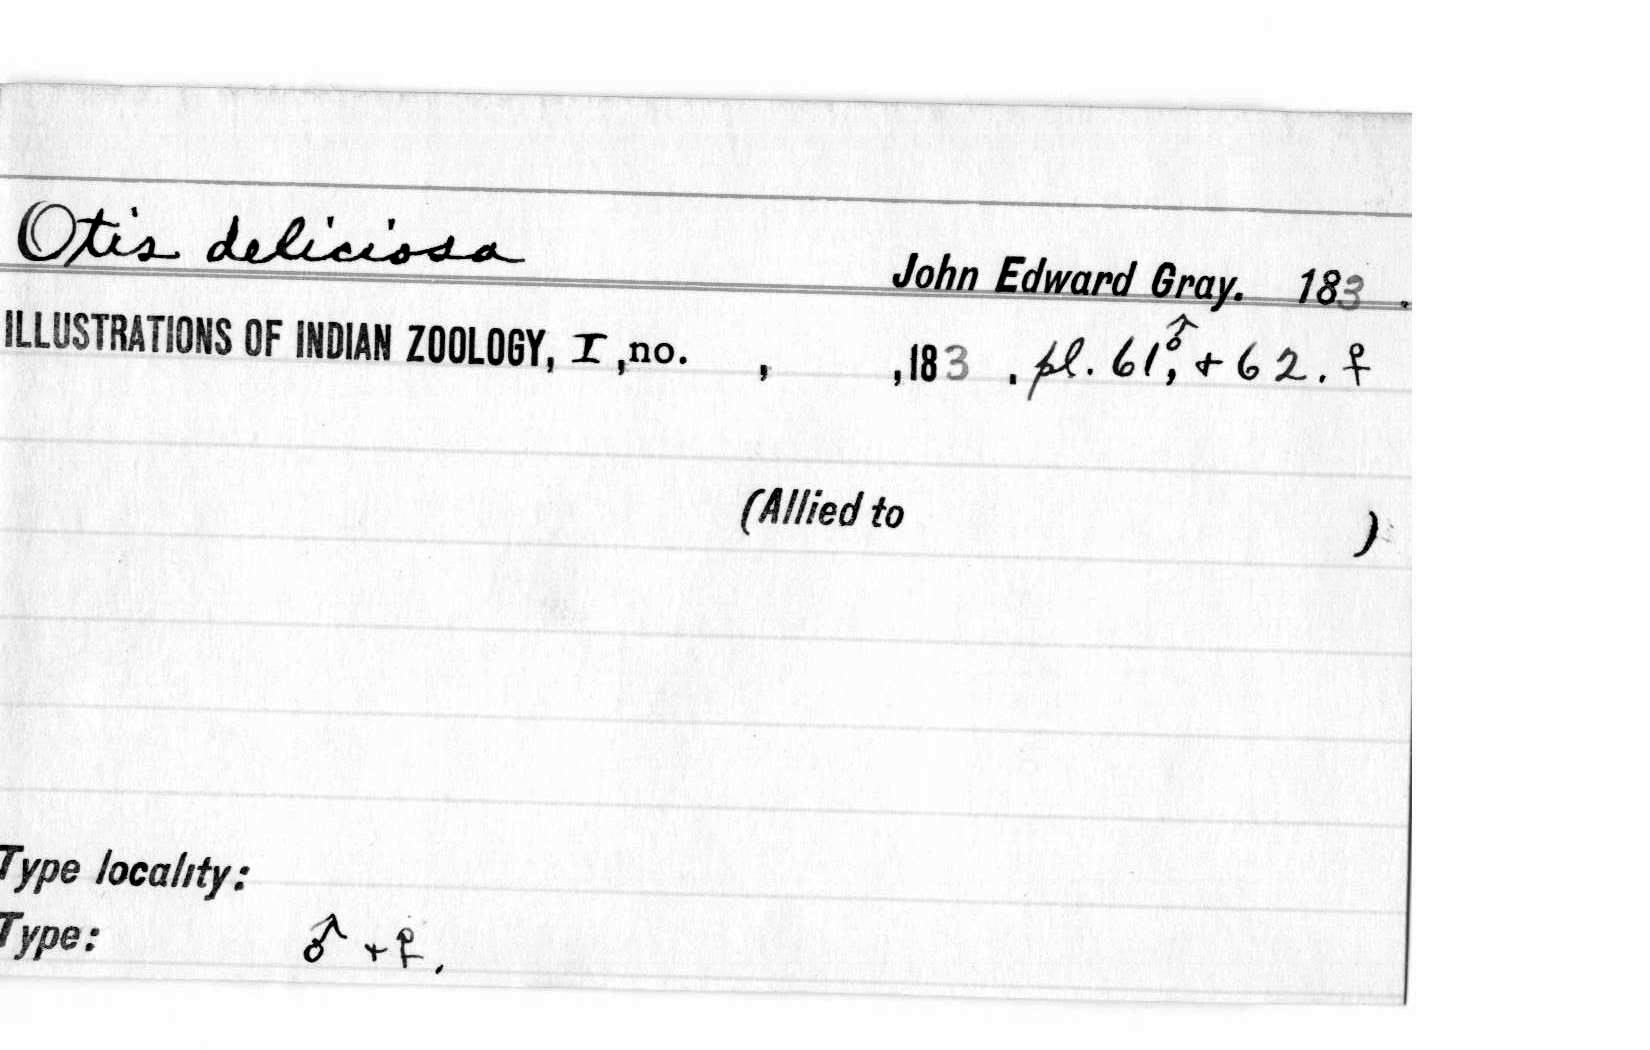 Otis deliciosa
John Edward Gray. 183 .
ILLUSTRATIONS OF INDIAN ZOOLOGY, I ,no. , ,183 . pl. 61♂, + 62. ♀
(Allied to )
Type locality:
Type: ♂ + ♀.